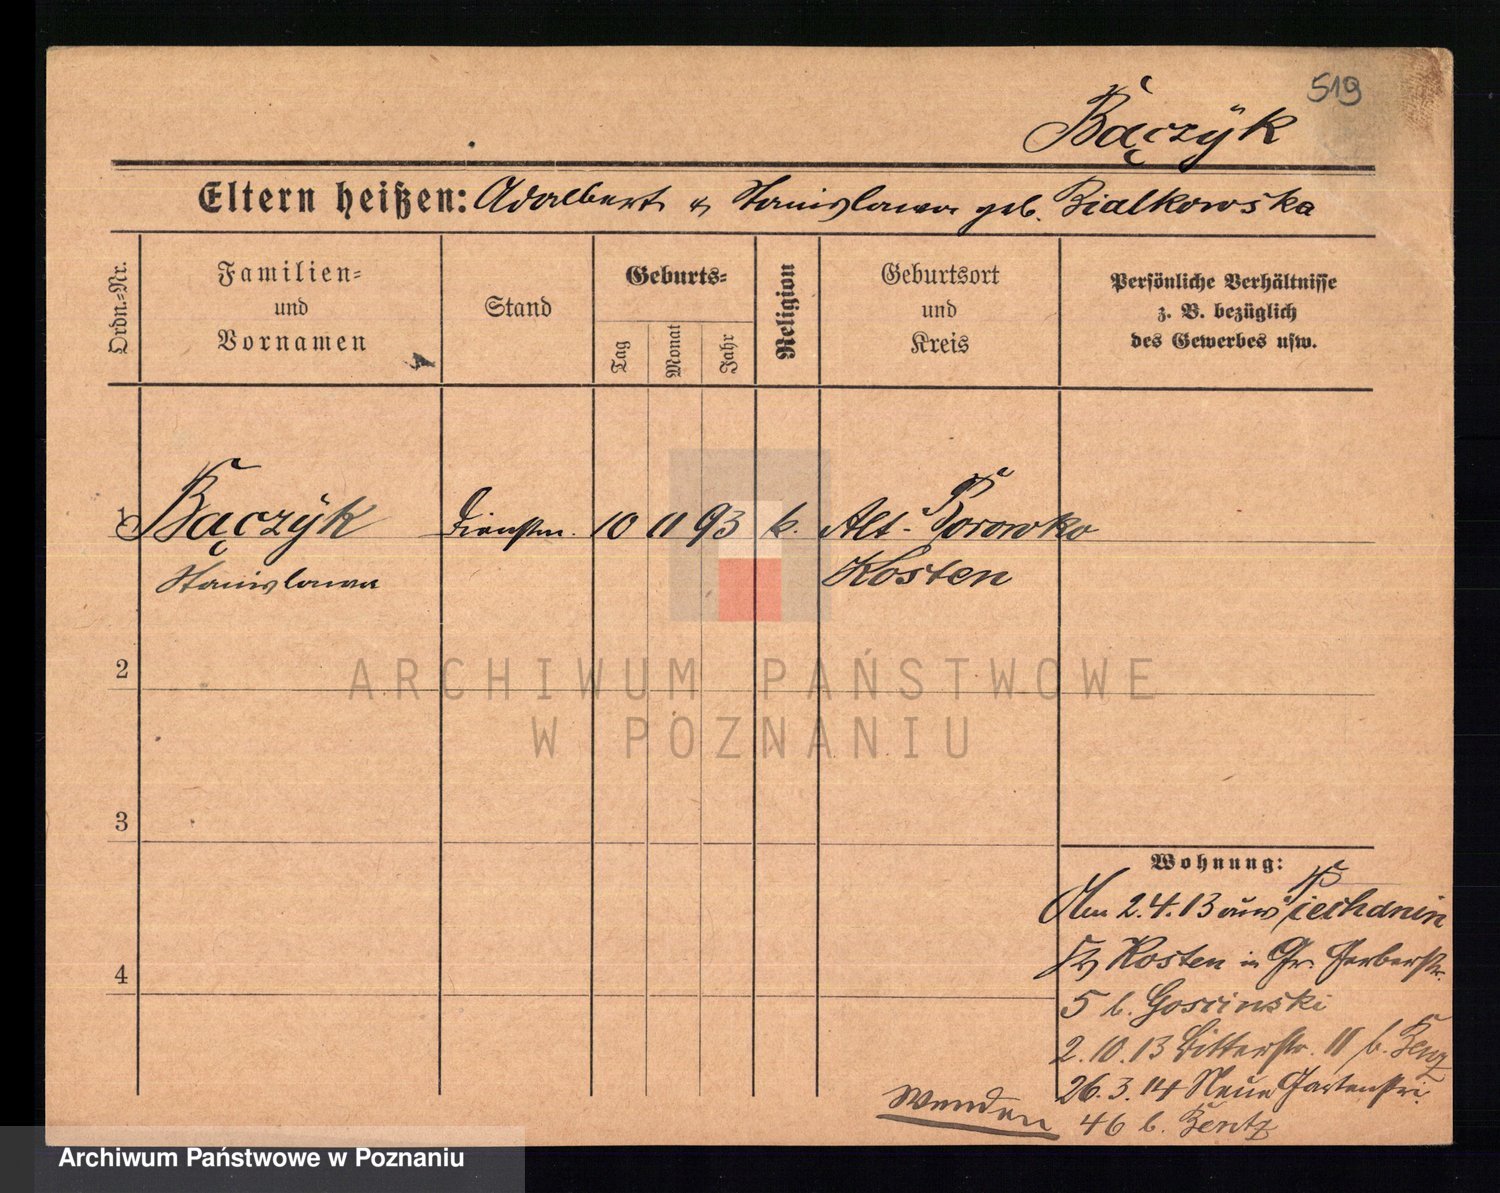 519
Bączÿk
Eltern heißen: Adalbert u Stanislawa geb. Bialkowska
Ordn.=Nr.
Familien=
und
Vornamen
Stand
Geburts=
Tag
Monat
Jahr
Religion
Geburtsort
und
Kreis
Persönliche Verhältnisse
z. B. bezüglich
des Gewerbes usw.
1 Bączÿk Dienstm. 10 11 93 k. Alt-Borowko
Stanislawa Kosten
2
3
4
Wohnung:
Am 2.4.13 aus Piechanin
Kr Kosten in Gr. Gerberstr.
5 b. Goscinski
2.10.13 Ritterstr. 11 b. Benz
26.3.14 Neue Gartenstr.
46 b. Bentz
Wenden
ARCHIWUM PAŃSTWOWE
W POZNANIU
Archiwum Państwowe w Poznaniu